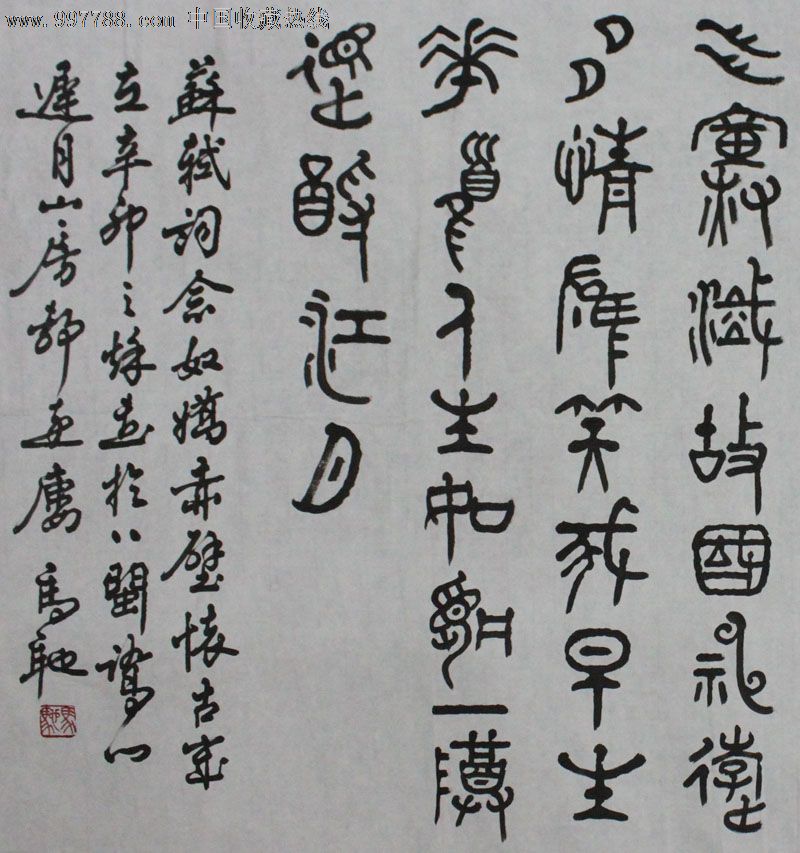 www.997788.com 中国收藏热线
煙滅故國神遊
多情應笑我早生
華髮人生如夢一尊
還酹江月
蘇軾詞念奴嬌赤壁懷古歲
立辛卯之秋書於八閩鷺門
遲月山房靜 馬馳